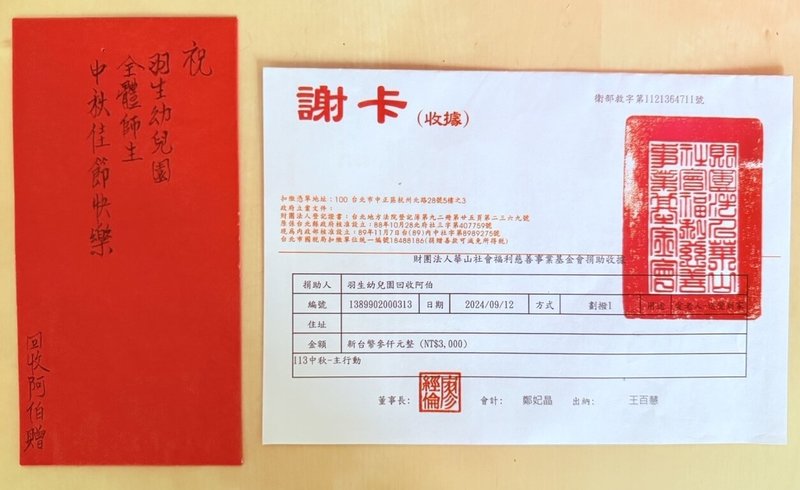 祝
羽生幼兒園
全體師生
中秋佳節快樂
回收阿伯贈
謝卡(收據)
衛部救字第1121364711號
扣繳憑單地址：100 台北市中正區杭州北路28號5樓之3
政府立案文件：
財團法人登記證書：台北地方法院登記簿第九二冊第廿五頁第二三六九號
原係台北縣政府核准設立：88年10月28北府社三字第407759號
現為內政部核准設立：89年11月7日台(89)內中社字第8989275號
台北市國稅局扣繳單位統一編號18488186(捐贈善款可減免所得稅)
財團法人華山社會福利慈善事業基金會捐助收據
財團法人華山社會福利慈善事業基金會
捐助人 羽生幼兒園回收阿伯
編號 1389902000313 日期 2024/09/12 方式 劃撥1 用途
住址
金額 新台幣參仟元整 (NT$3,000)
113中秋-主行動
董事長： 廖經倫 會計： 鄭妃晶 出納： 王百慧